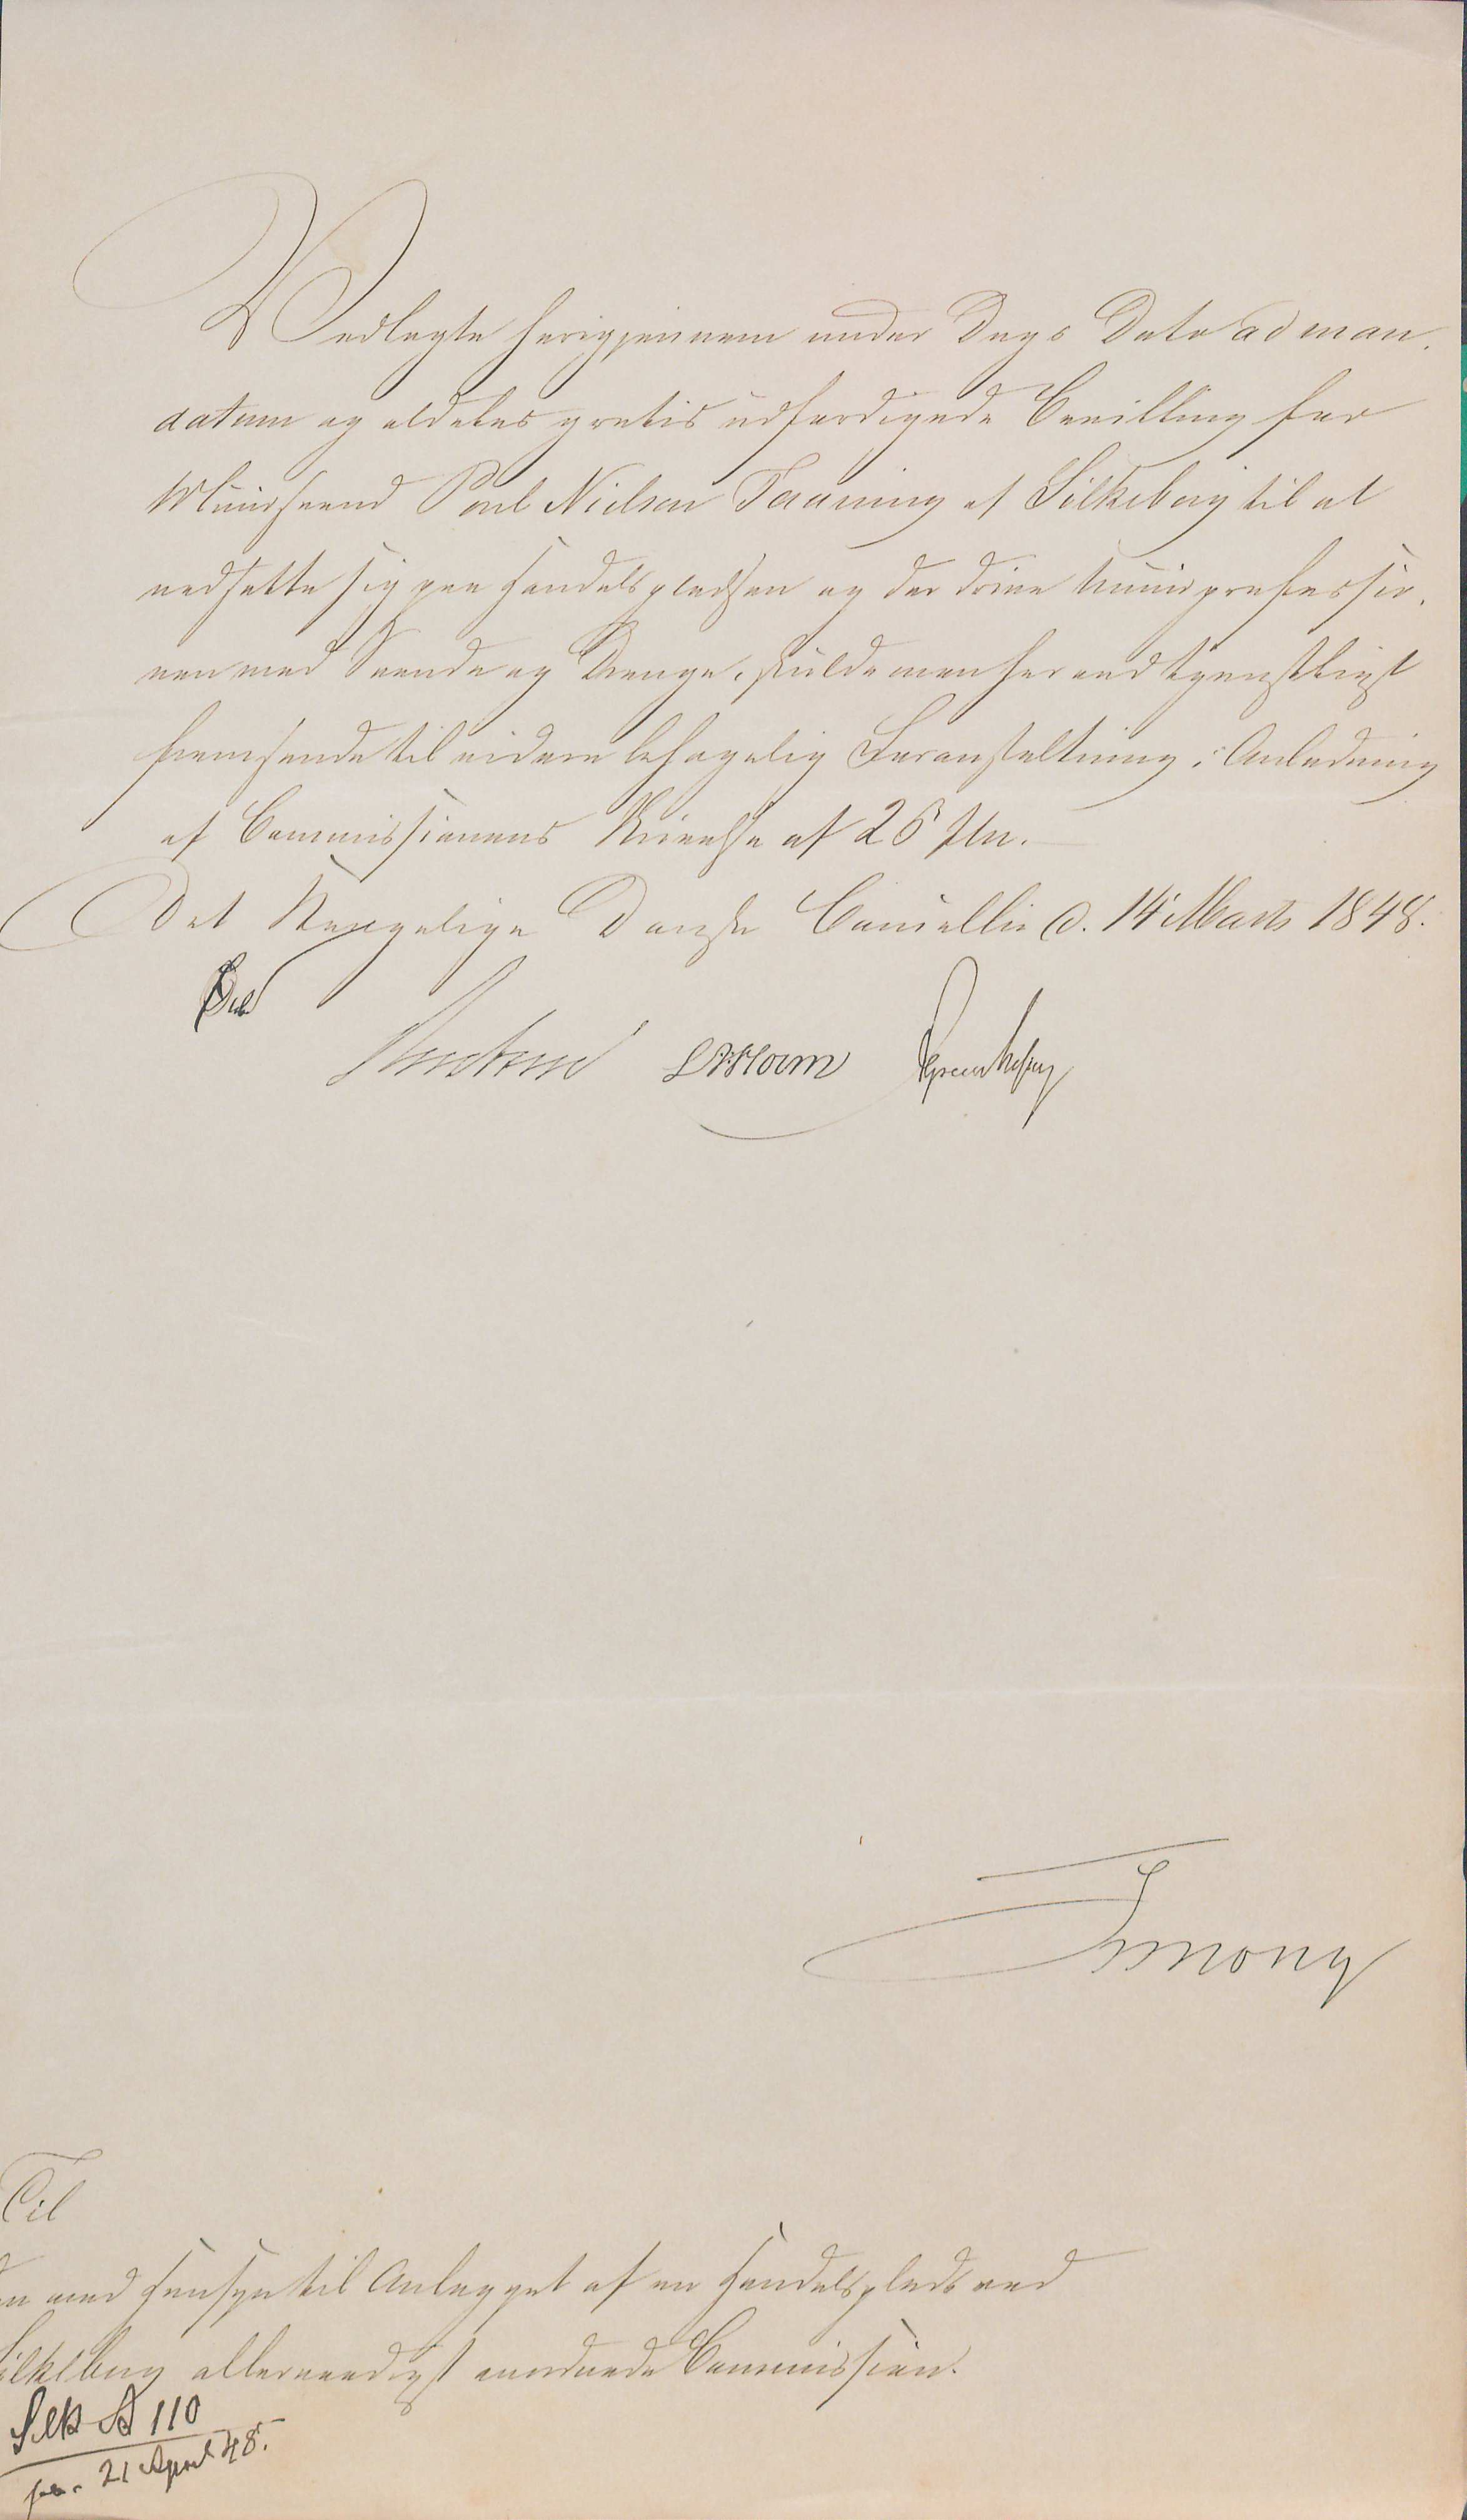 Vedlagte herigjennem under Dags Dato ad man-
datum og aldeles gratis udfærdigede Bevilling for
Muursvend Poul Nielsen Taaning af Silkeborg til at
nedsætte sig paa Handelspladsen og der drive Muurprofessio-
nen med Svende og Drenge, skulde man herved tjenstligst
fremsende til videre behagelig Foranstaltning i Anledning
af Commissionens Skrivelse af 26 f.M.
Det Kongelige Danske Cancellie d. 14 Marts 1848.
Til
den med Hensyn til Anlægget af en Handelsplads ved
Silkeborg allernaadigst anordnede Commission.
Silk A 110
21 April 48.